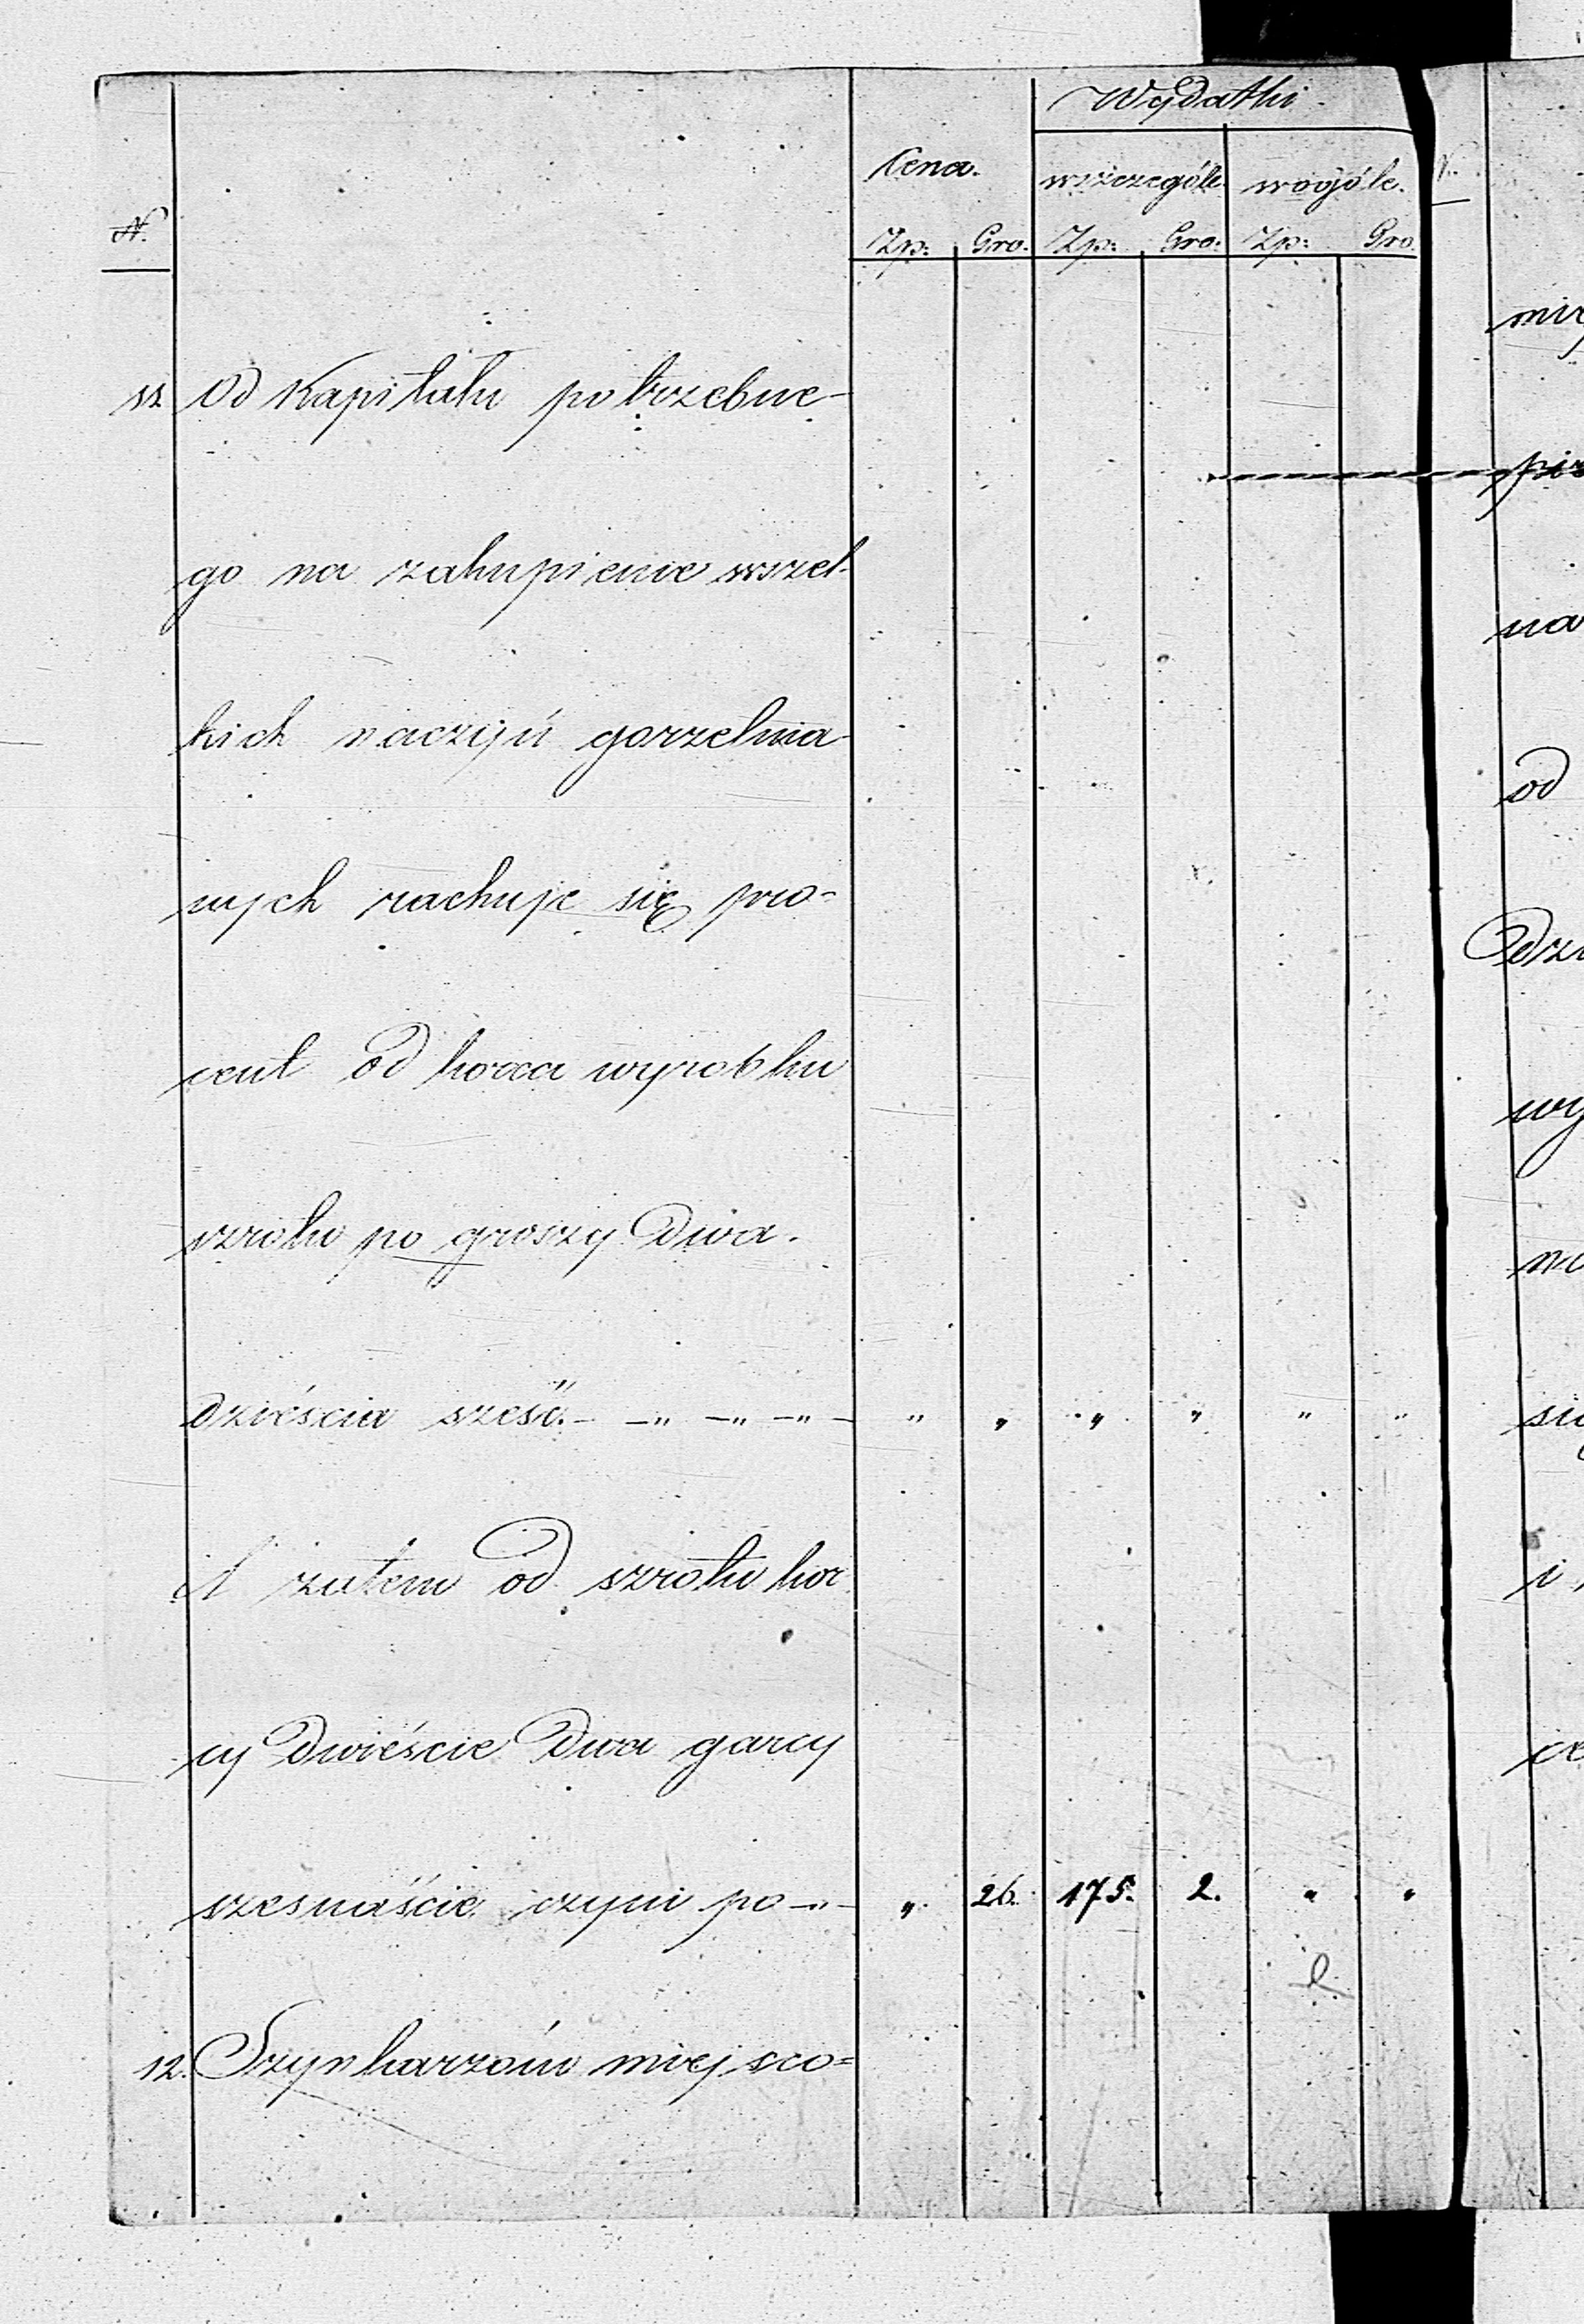 Wydatki
Cena. wszczególe. woójóle.
N. Zp: Gro. Zp: Gro: Zp: Gro.
11. Od Kapitału potrzebne-
go na zakupienie wszel-
kich naczyń gorzelnia-
nych rachuje się pro-
cent od korca wyrobku
szrotu po groszy Dwa.
dzieścia sześć. - -„ -„ -„ - „ „ „ „ „ „
A zatem od szrotu kor
cy Dwieście Dwa garcy
szesnaście czyni po -„- „ 26. 175. 2. „ „
12. Szynkarzom miejsco=
N.
pis
na
od
wy
i
ce